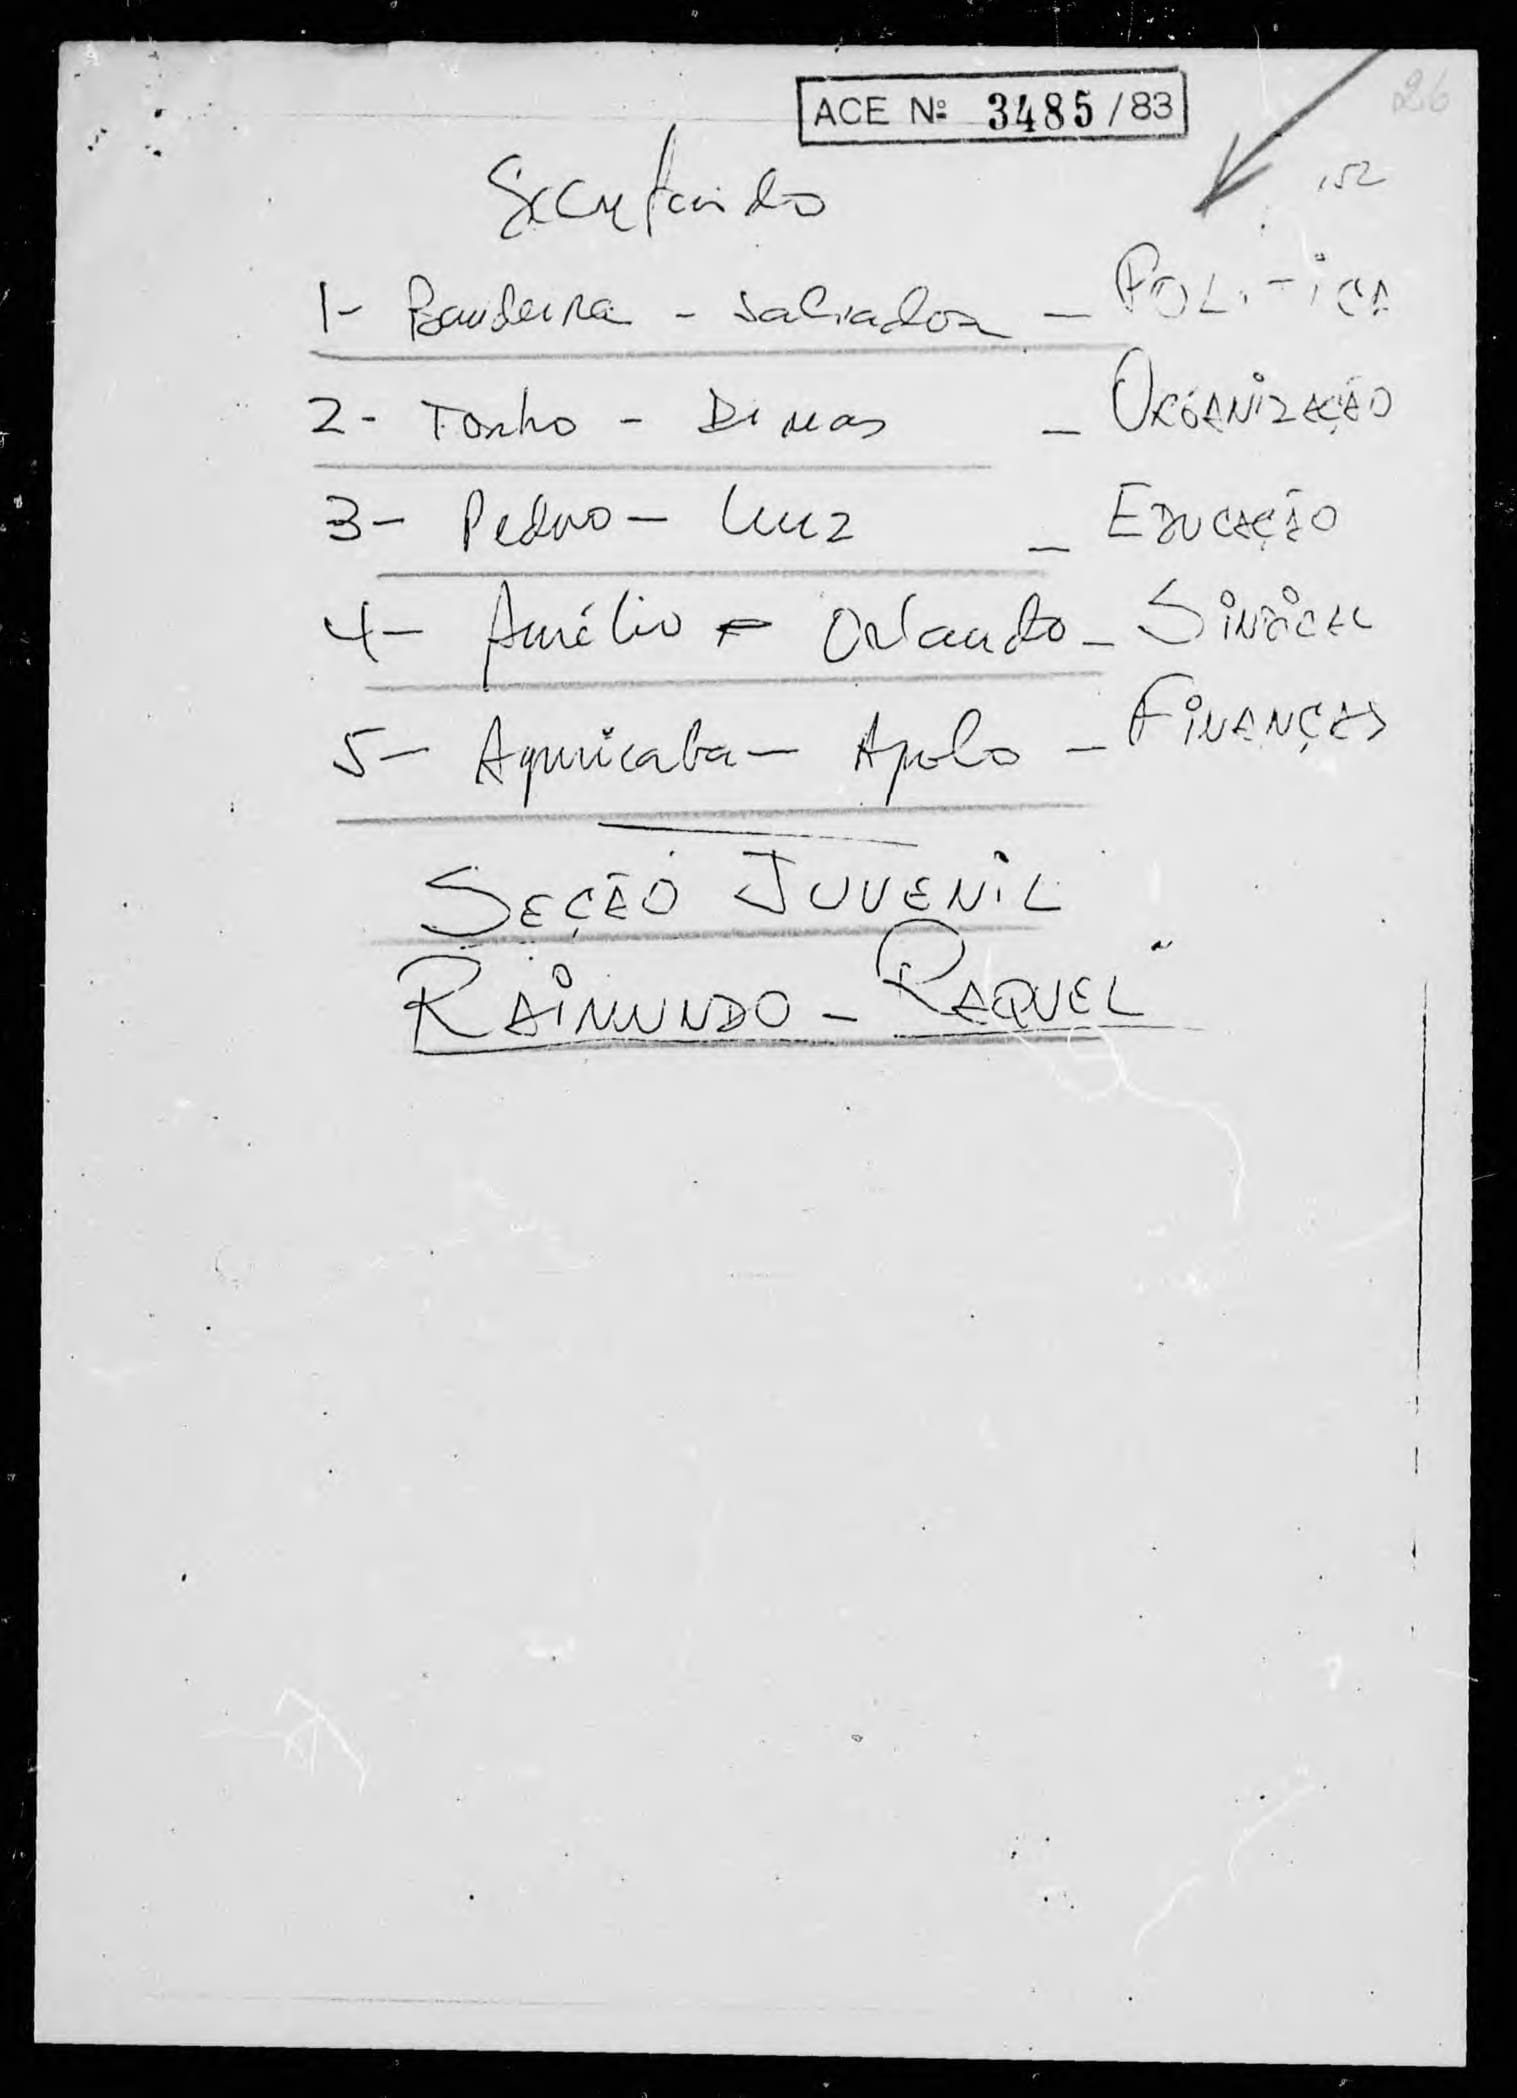 ACE Nº 3485/83
26
152
Secretariado
1- Bandeira - Salvador - POLÍTICA
2- Tonho - Dimas - ORGANIZAÇÃO
3- Pedro - Luiz - EDUCAÇÃO
4- Aurélio - Orlando - SINDICAL
5- Ajuricaba - Apolo - FINANÇAS
SEÇÃO JUVENIL
RAIMUNDO - RAQUEL